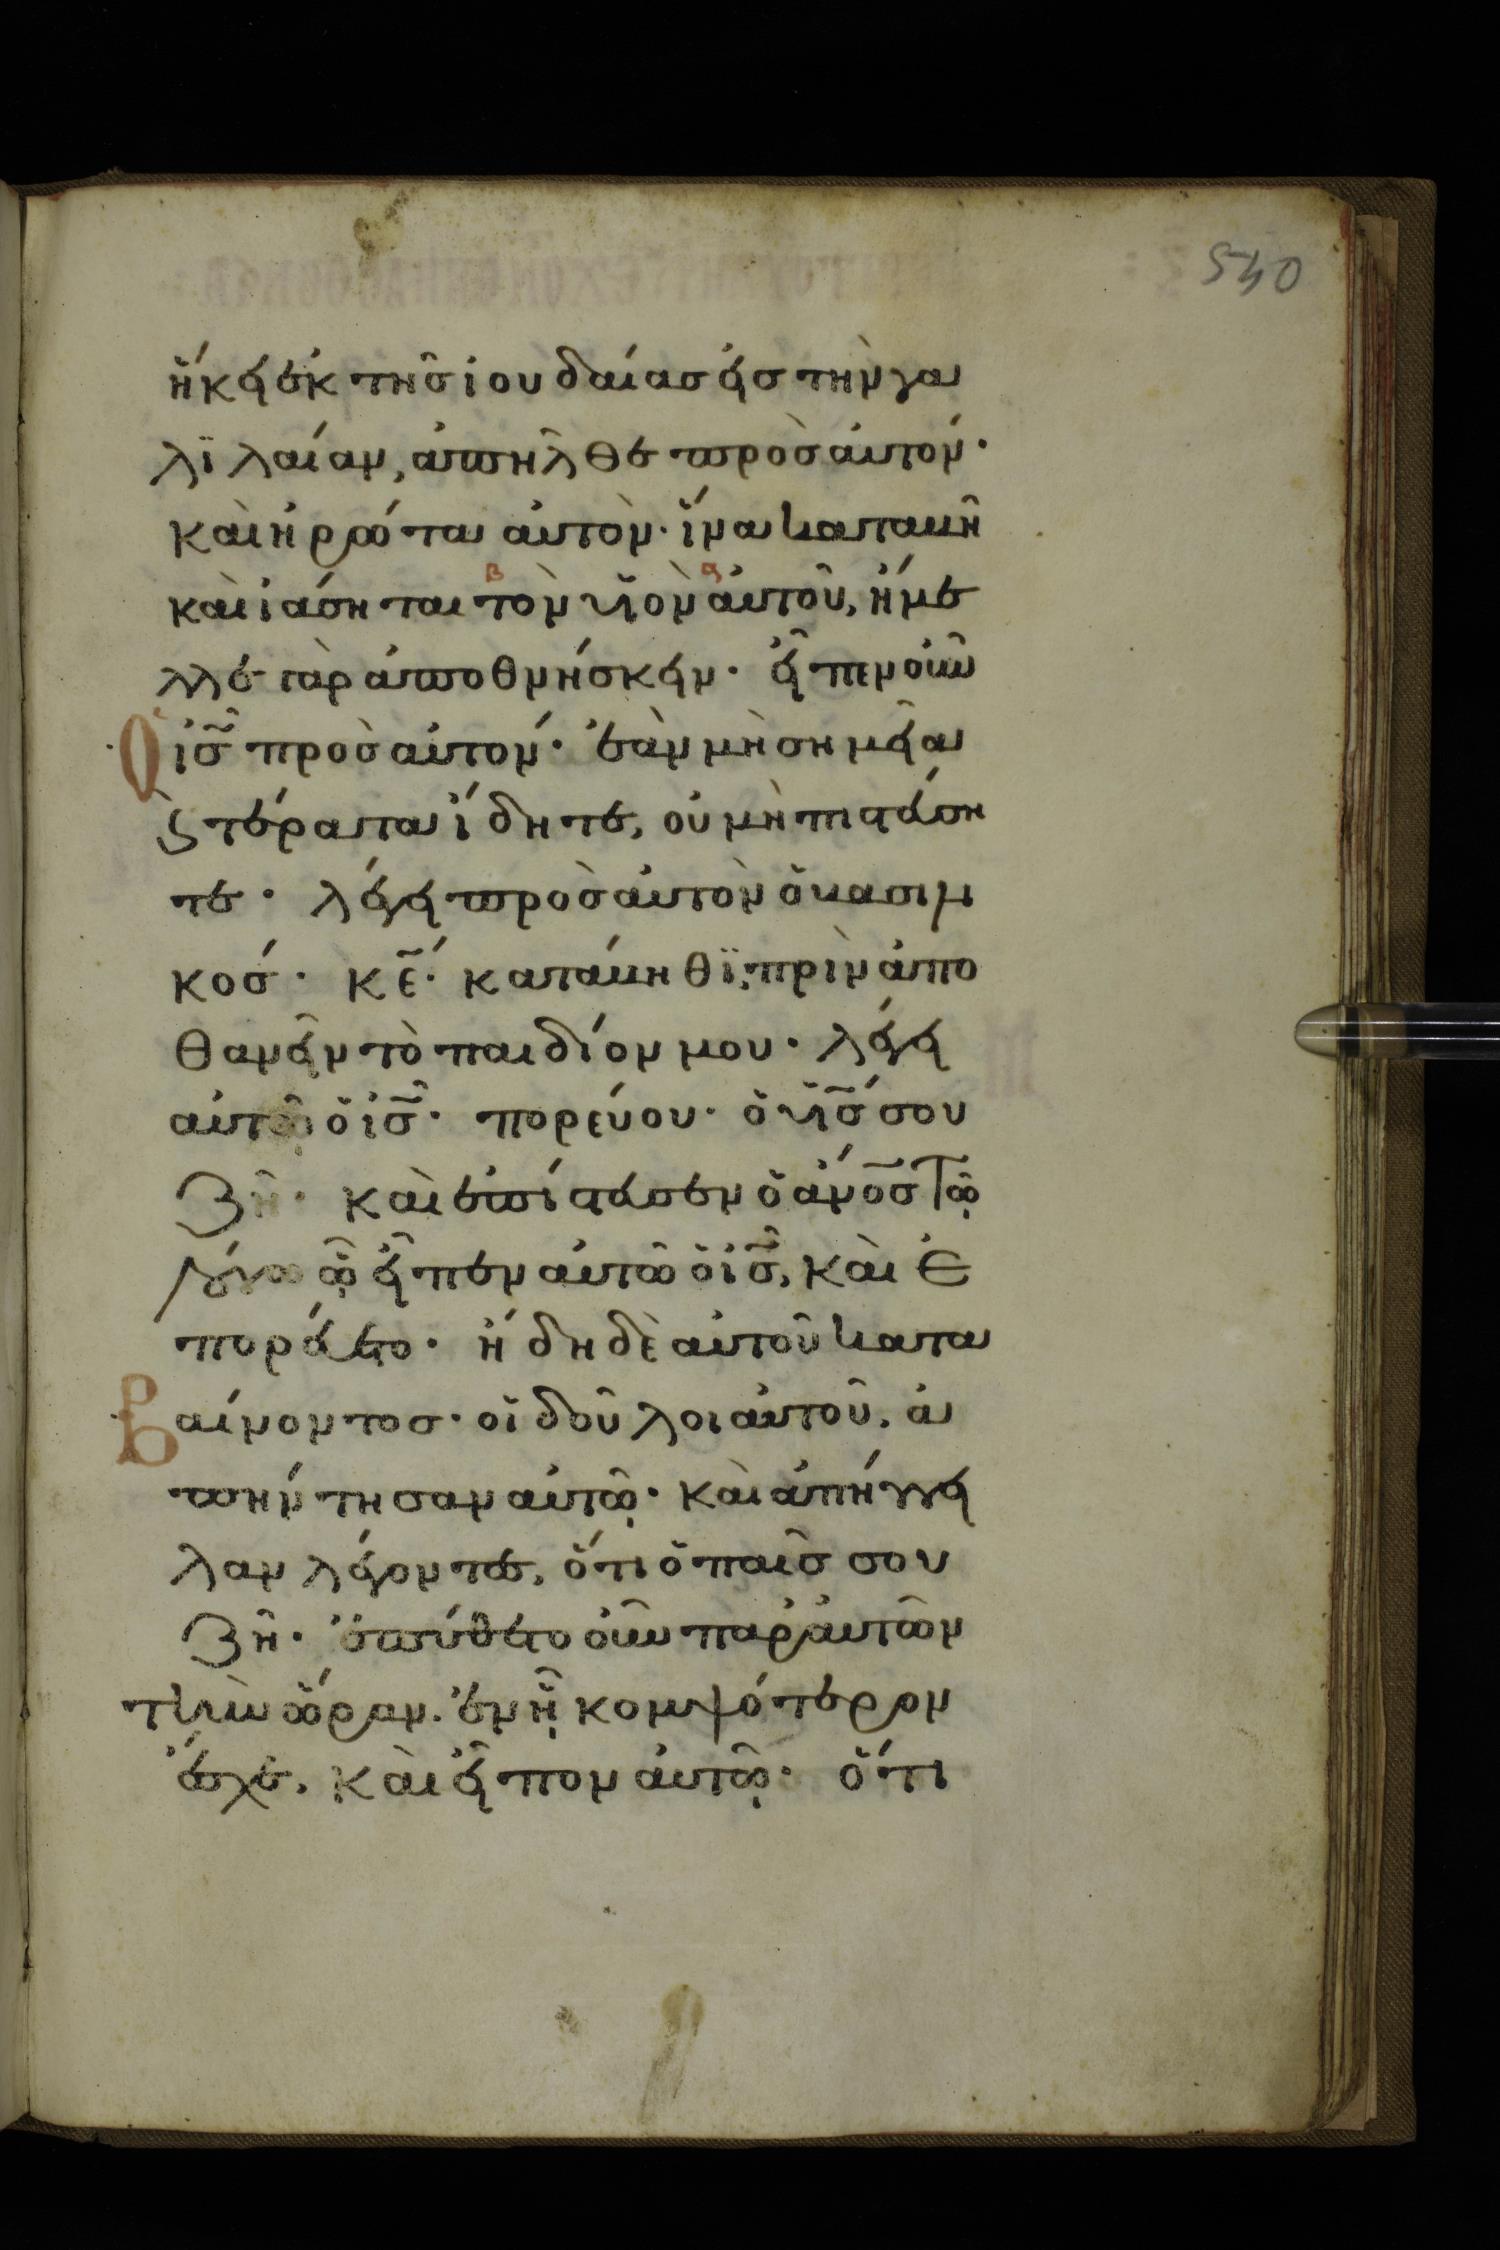 540
ἥκει ἐκ τῆς ἰουδαίας εἰς τὴν γα
λϊλαίαν, ἀπῆλθε πρὸς αὐτόν·
καὶ ἠρώτα αὐτὸν· ἵνα καταβῆ
καὶ ἰάσηται τὸν υἱὸν αὐτοῦ, ἤμε
β α
λλε γὰρ ἀποθνήσκειν· εἶπεν οὖν
ὁ ἰς̃ πρὸς αὐτόν· ἐὰν μὴ σημεῖα
ϗ τέρατα ἴδητε, οὐ μὴ πιστεύση
τε· λέγει πρὸς αὐτὸν ὁ βασιλι
κός· κε̃· κατάβηθϊ, πρὶν ἀπο
θανεῖν τὸ παιδίον μου· λέγει
αὐτῷ ὁ ἰς̃· πορεύου· ὁ υἱς̃ σου
ζῆ· καὶ ἐπίστευσεν ὁ ἄνο̃ς τῷ
λόγω ᾧ εἶπεν αὐτῶ ὁ ἰς̃, καὶ ἐ
πορεύετο· ἤδη δὲ αὐτοῦ κατα
βαίνοντος· οἱ δοῦλοι αὐτοῦ, ἀ
πήντησαν αὐτῷ· καὶ ἀπήγγει
λαν λέγοντες, ὅτι ὁ παῖς σου
ζῆ· ἐπύθετο οὖν παρ' αὐτῶν
τὴν ὥραν. ἐν ᾗ κομψότερον
ἔσχε. καὶ εἶπον αὐτῷ· ὅτι